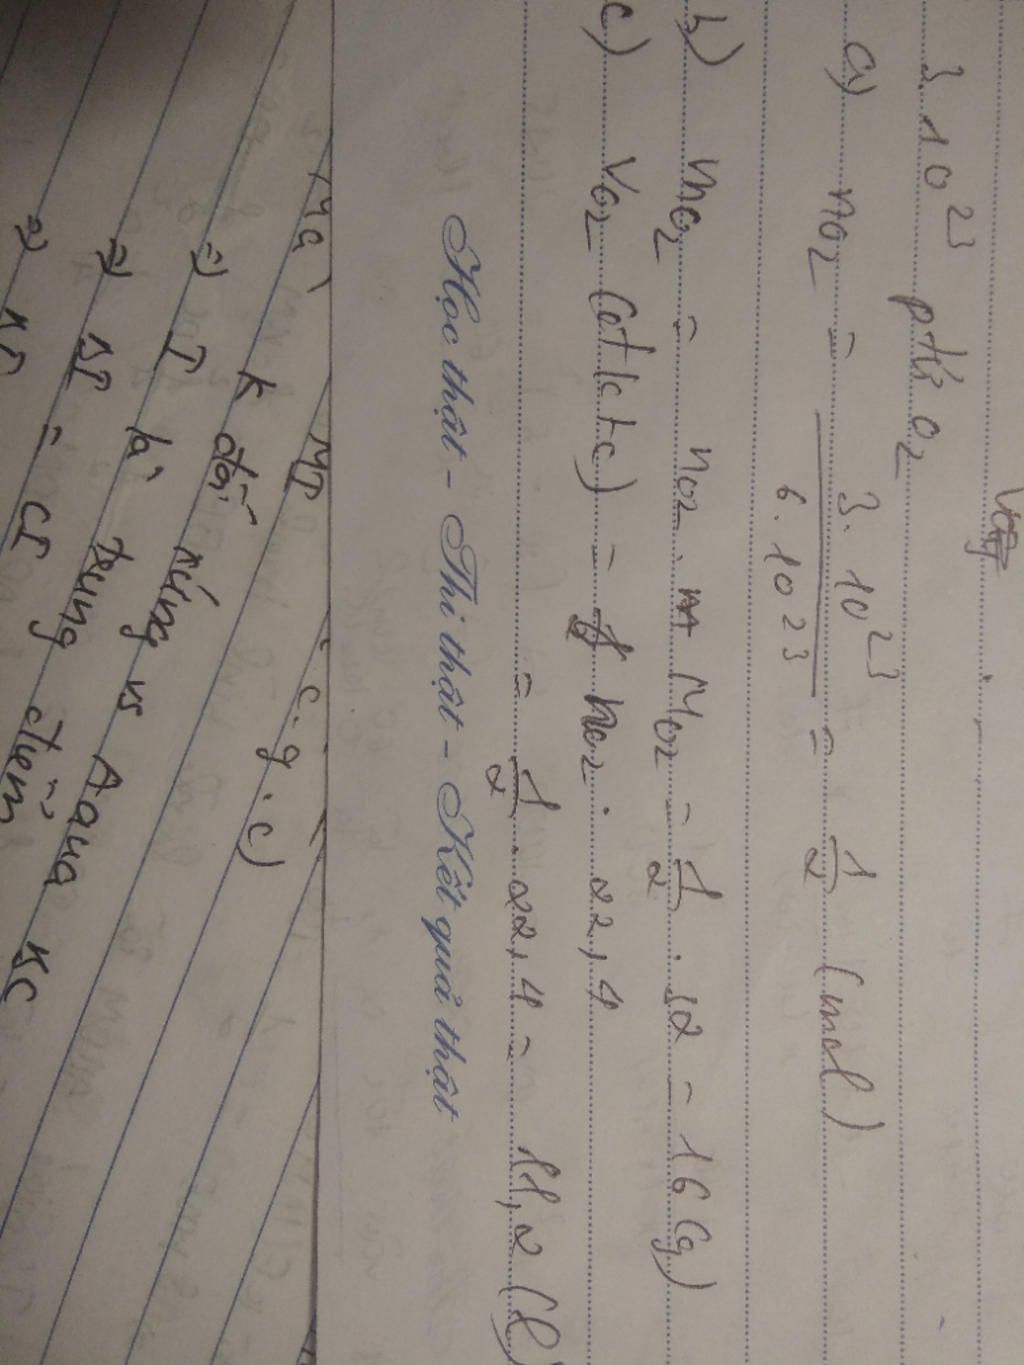 3.10²³ ptử O₂
a) nO₂ = 3.10²³ / 6.10²³ = 1/2 (mol)
b) mO₂ = nO₂ . MO₂ = 1/2 . 32 = 16 (g)
c) VO₂ (đktc) = nO₂ . 22,4
= 1/2 . 22,4 = 11,2 (l)
Học thật - Thi thật - Kết quả thật
Mà MD c.g.c)
=> K đối xứng vs A qua BC
=> I là trung điểm